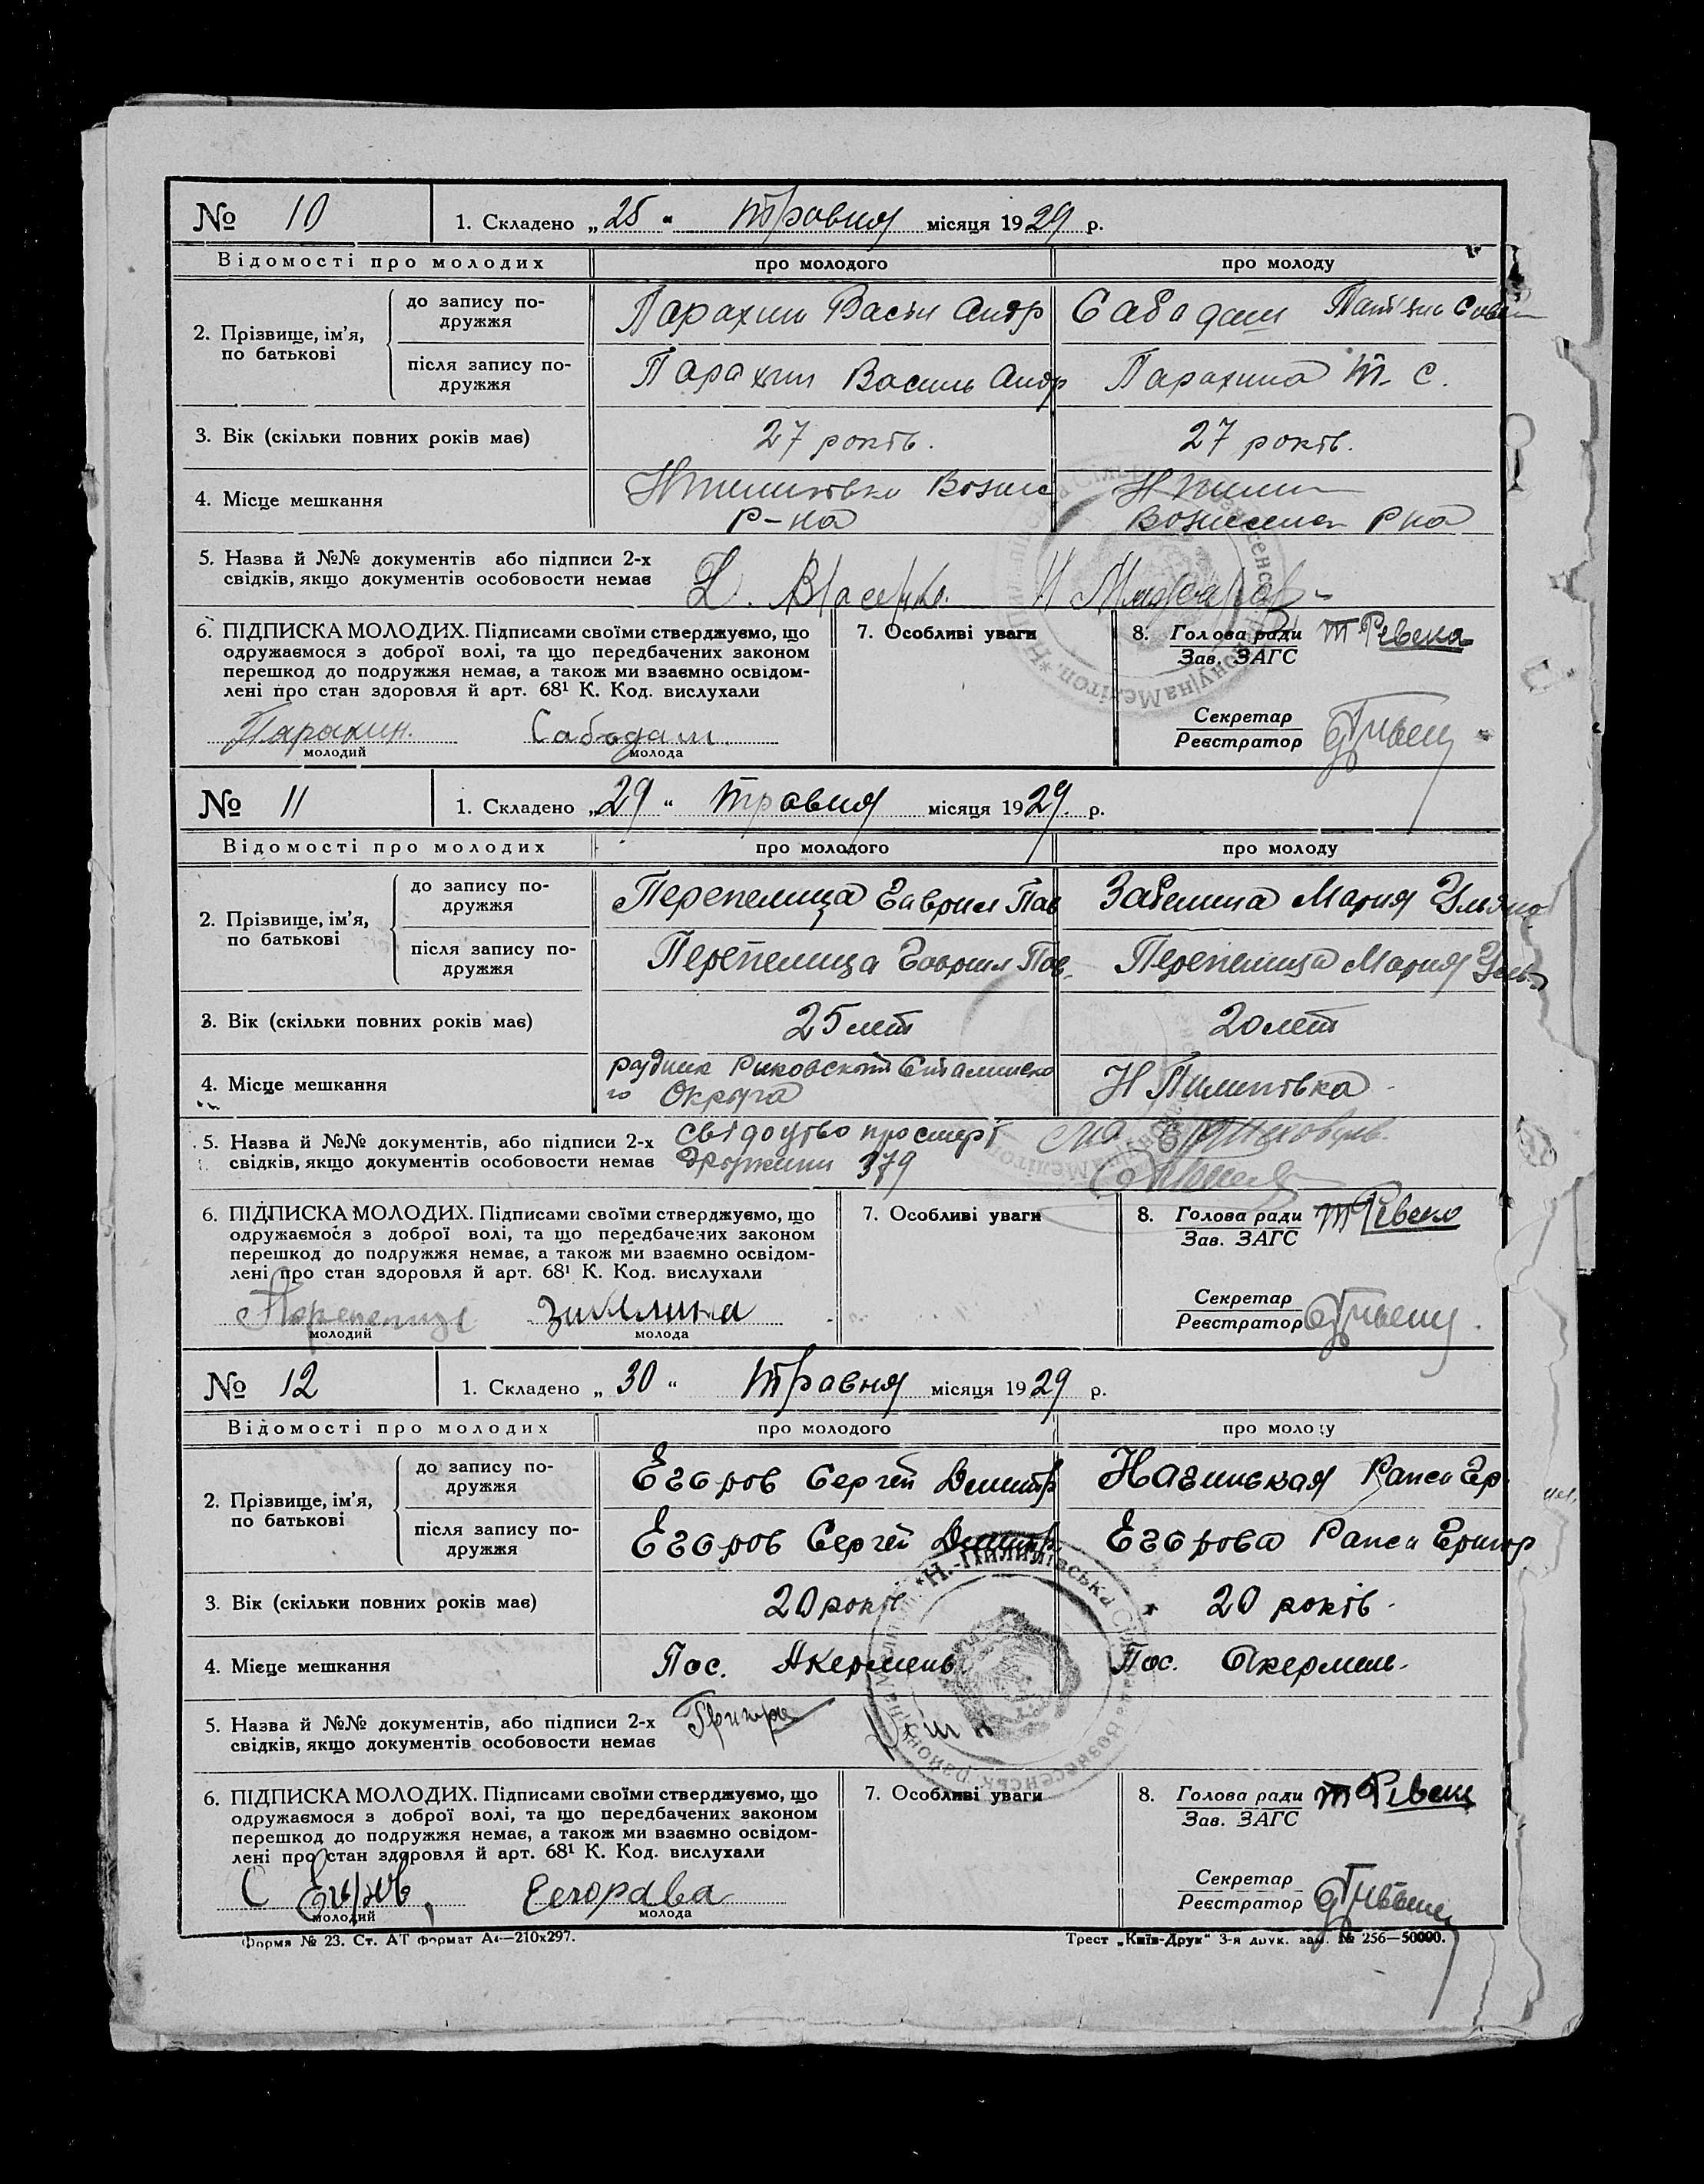 № 10 1. Складено „25“ травня місяця 1929 р.
Відомості про молодих про молодого про молоду
2. Прізвище, ім’я, по батькові
до запису по-
дружжя
Парахин Васіл Андр Сабадаш
після запису по-
дружжя
Парахин Василь Андр Парахина Т. С.
3. Вік (скільки повних років має) 27 років. 27 років.
4. Місце мешкання
Р-на Р на
5. Назва й №№ документів або підписи 2-х
свідків, якщо документів особовости немає
6. ПІДПИСКА МОЛОДИХ. Підписами своїми стверджуємо, що
одружаємося з доброї волі, та що передбачених законом
перешкод до подружжя немає, а також ми взаємно освідом-
лені про стан здоровля й арт. 68¹ К. Код. вислухали
Парахин. Сабадаш.
молодий молода
7. Особливі уваги
8. Голова ради
Зав. ЗАГС
Секретар
Реєстратор
№ 11 1. Складено „29“ травня місяця 1929. р.
Відомості про молодих про молодого про молоду
2. Прізвище, ім’я, по батькові
до запису по-
дружжя
Перепелица Гаврил Пав Мария Ульяно
після запису по-
дружжя
Перепелица Гаврил Пав. Перепелица Мария
3. Вік (скільки повних років має) 25 лет 20 лет
4. Місце мешкання
рудник Рыковский Сталинско
го Округа
Н Пилипівка
5. Назва й №№ документів, або підписи 2-х
свідків, якщо документів особовости немає
свідоцтво про смерт
дружини 379
6. ПІДПИСКА МОЛОДИХ. Підписами своїми стверджуємо, що
одружаємося з доброї волі, та що передбачених законом
перешкод до подружжя немає, а також ми взаємно освідом-
лені про стан здоровля й арт. 68¹ К. Код. вислухали
молодий молода
7. Особливі уваги
8. Голова ради
Зав. ЗАГС
Секретар
Реєстратор
№ 12 1. Складено „30“ травня місяця 1929 р.
Відомості про молодих про молодого про молоду
2. Прізвище, ім’я, по батькові
до запису по-
дружжя
Егоров Сергей Дмитр
після запису по-
дружжя
Егоров Сергей Дмитр. Егорова
3. Вік (скільки повних років має) 20 років 20 років.
4. Місце мешкання Пос. Акермень Пос. Акермень.
5. Назва й №№ документів, або підписи 2-х
свідків, якщо документів особовости немає
6. ПІДПИСКА МОЛОДИХ. Підписами своїми стверджуємо, що
одружаємося з доброї волі, та що передбачених законом
перешкод до подружжя немає, а також ми взаємно освідом-
лені про стан здоровля й арт. 68¹ К. Код. вислухали
С Егоров, Eегорава
молодий молода
7. Особливі уваги
8. Голова ради
Зав. ЗАГС
Секретар
Реєстратор
Форма № 23. Ст. АТ формат А4—210х297. Трест „Київ-Друк“ 3-я друк. зам. № 256—50000.